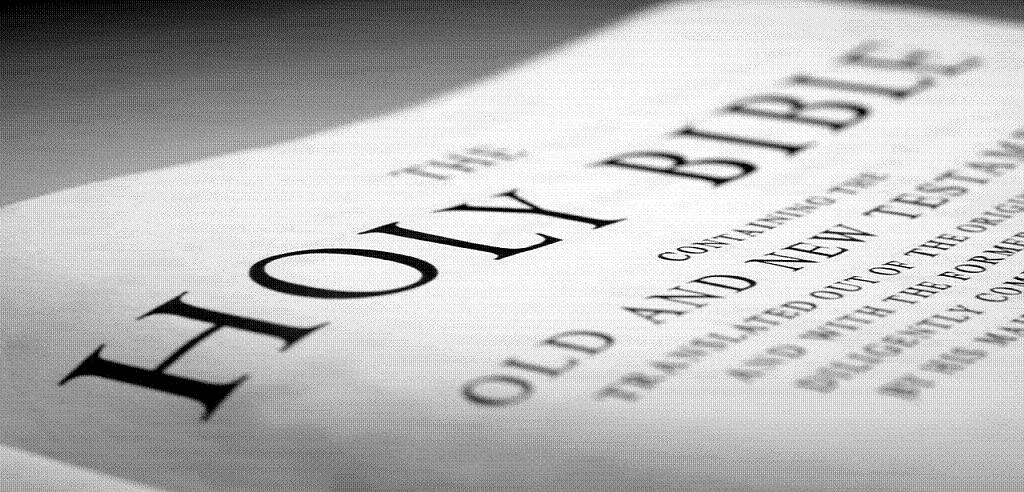 THE
HOLY BIBLE
CONTAINING THE
OLD AND NEW TESTAM
TRANSLATED OUT OF THE ORIGI
AND WITH THE FORMER
DILIGENTLY COM
BY HIS MA